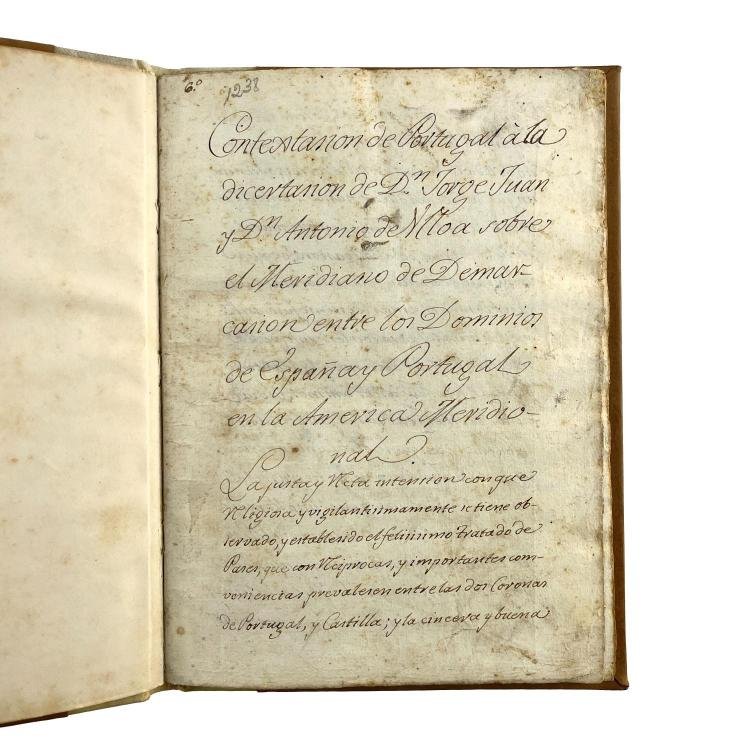 6.º
1238
Contextasion de Portugal à la
dicertasion de Dn Jorge Juan
y Dn Antonio de Vlloa sobre
el Meridiano de Demar-
casion entre los Dominios
de España y Portugal
en la America Meridio-
nal.
La justa y Recta intension con que
Religiosa y vigilantissimamente se tiene ob-
servado, y establesido el felissimo Tratado de
Pases, que con Reciprocas, y importantes com-
veniencias prevalesen entre las dos Coronas
de Portugal, y Castilla; y la cincera y buena